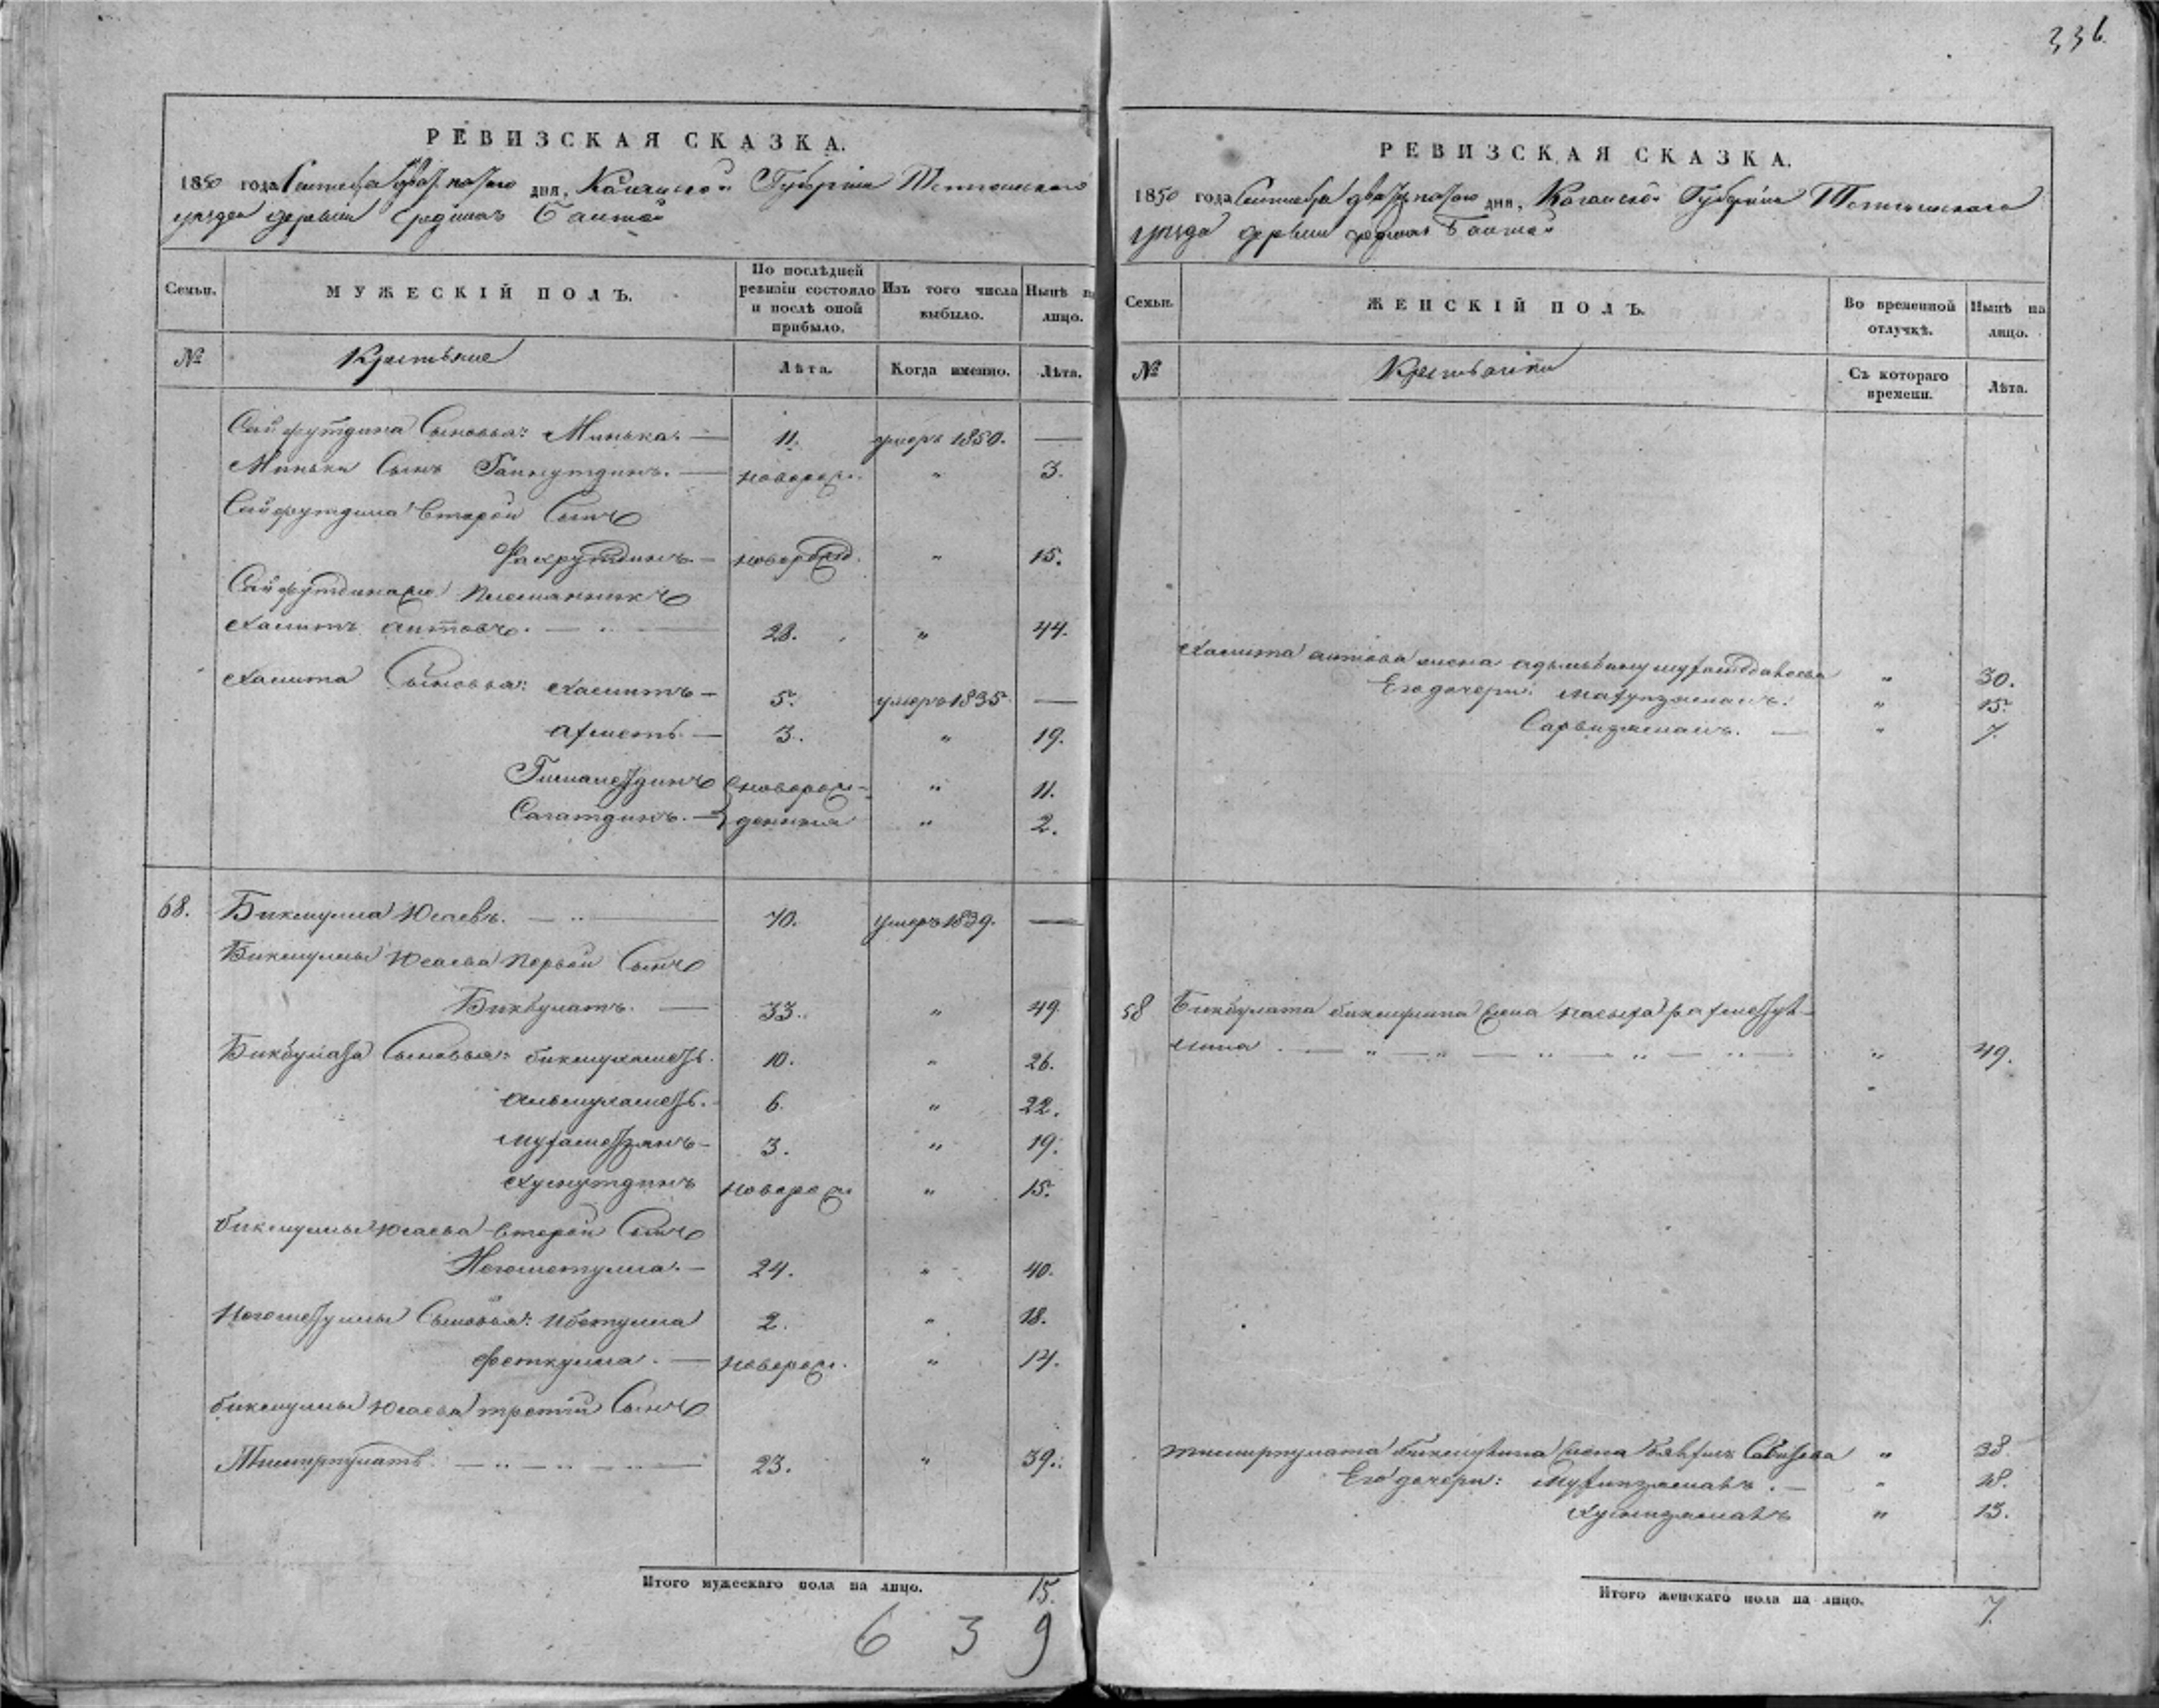 336
РЕВИЗСКАЯ СКАЗКА.
1850 года Сентября дня, Казанской Губерніи Тетюшскаго
уѣзда деревни Средних Балтай
Семьи. МУЖЕСКІЙ ПОЛЪ. По послѣдней ревизіи состояло и послѣ оной прибыло. Изъ того числа выбыло. Нынѣ на лицо.
№ Крестьяне Лѣта. Когда именно. Лѣта.
Сайфутдина Сыновья: Минька. — 11. умеръ 1850. —
Миньки Сынъ Гайнутдинъ. — новорож. " 3.
Сайфутдина второй Сынъ
Фахрутдинъ — новорожд. " 15.
Сайфутдина племянникъ
Хамитъ Аитовъ. — " — 28. " 44.
Хамита Сыновья: — 5. умеръ 1835. —
Ахметъ. — 3. " 19.
новорож- " 11.
Сагатдинъ. — денныя " 2.
68. Бикмулла Юсаевъ. — " — 70. умеръ 1839. —
Бикмуллы Юсаева первой Сынъ
Бикбулатъ. — 33. " 49.
Бикбулата Сыновья: Бикмухаметь. 10. " 26.
Альмухаметь. 6. " 22.
Мухаметзянъ — 3. " 19.
Хуснутдинъ новорож. " 15.
Бикмуллы Юсаева второй Сынъ
Негометулла. — 24. " 40.
Негометуллы Сыновья: Ибетулла 2. " 18.
Феткулла. — новорож. " 14.
Бикмуллы Юсаева третій Сынъ
Тимерпулатъ. — " — " — " — 23. " 39.
Итого мужескаго пола на лицо. 15.
639
РЕВИЗСКАЯ СКАЗКА.
1850 года Сентября дня, Казанской Губерніи Тетюшскаго
уѣзда деревни Средних Балтай
Семьи. ЖЕНСКІЙ ПОЛЪ. Во временной отлучкѣ. Нынѣ на лицо.
№ Крестьянки Съ котораго времени. Лѣта.
Хамита Аитова жена " 30.
Его дочери: " 15.
Сарвизямалъ. — " 7.
58 Бикбулата Бикмулина жена
" 49.
Тимерпулата Бикмулина жена " 38.
Его дочери: " 18.
Хуснизямалъ " 13.
Итого женскаго пола на лицо. 7.